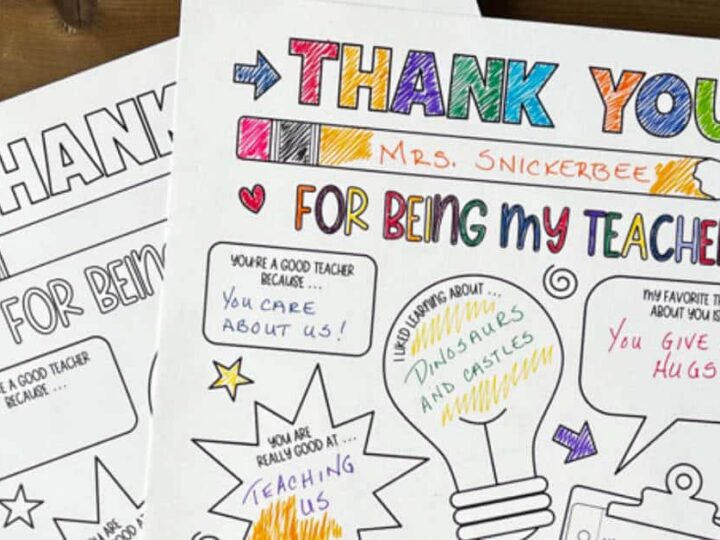 THANK YOU
MRS. SNICKERBEE
FOR BEING MY TEACHER
YOU'RE A GOOD TEACHER
BECAUSE ...
YOU CARE
ABOUT US!
I LIKED LEARNING ABOUT ...
DINOSAURS
AND CASTLES
MY FAVORITE
ABOUT YOU IS
You GIVE
HUGS
YOU ARE
REALLY GOOD AT ...
TEACHING
US
HANK
FOR BEING
A GOOD TEACHER
BECAUSE ...
ARE